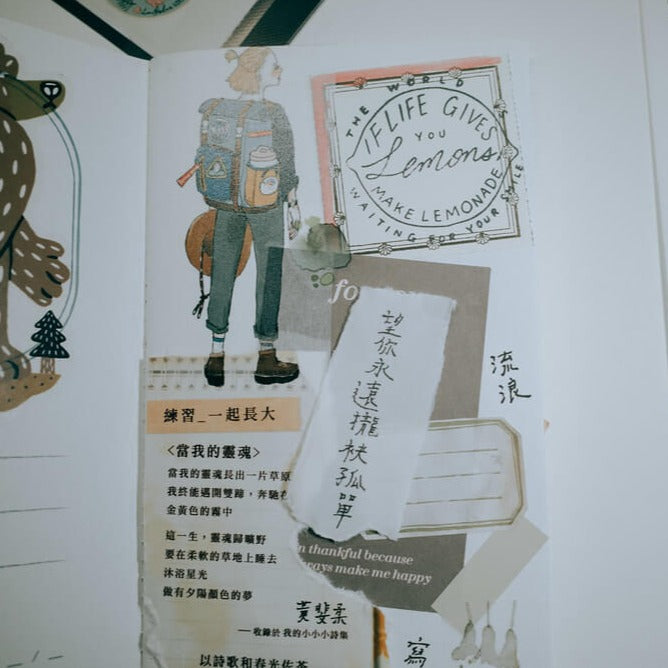 THE WORLD
IF LIFE GIVES
YOU
Lemons
MAKE LEMONADE
WAITING FOR YOUR SMILE
望你永遠攏袂孤單
流浪
練習_一起長大
<當我的靈魂>
當我的靈魂長出一片草原
我終能邁開雙蹄，奔馳在
金黃色的霧中
這一生，靈魂歸曠野
要在柔軟的草地上睡去
沐浴星光
做有夕陽顏色的夢
thankful because
make me happy
黃斐柔
——收錄於 我的小小小詩集
以詩歌和春光佐茶
寫